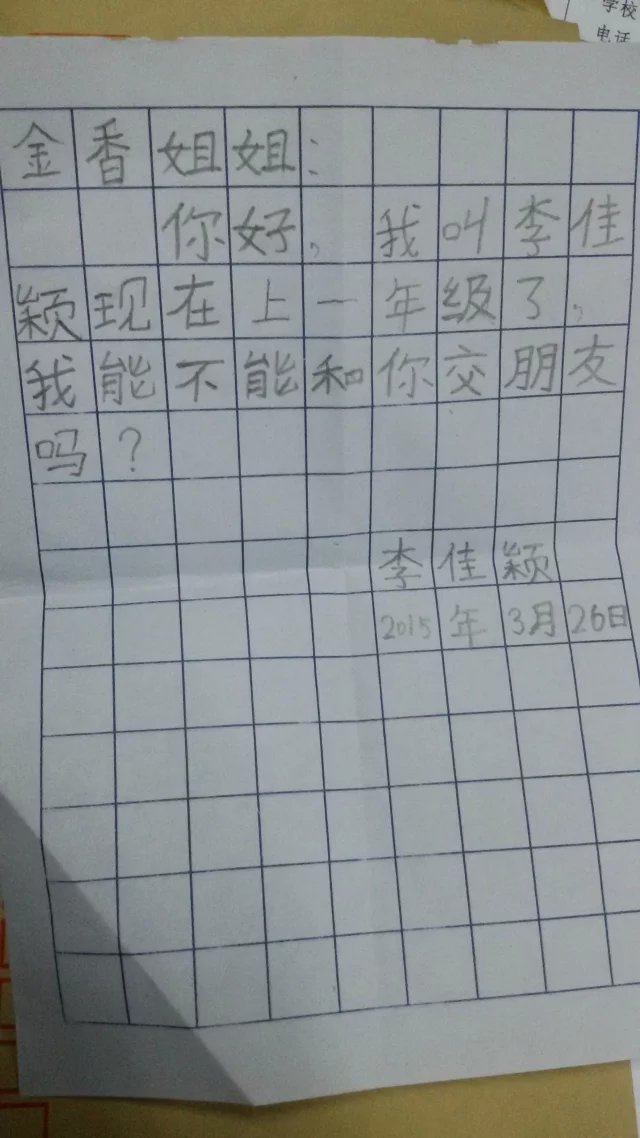 学校
电话
金香姐姐：
你好，我叫李佳
颖现在上一年级了，
我能不能和你交朋友
吗？
李佳颖
2015年3月26日